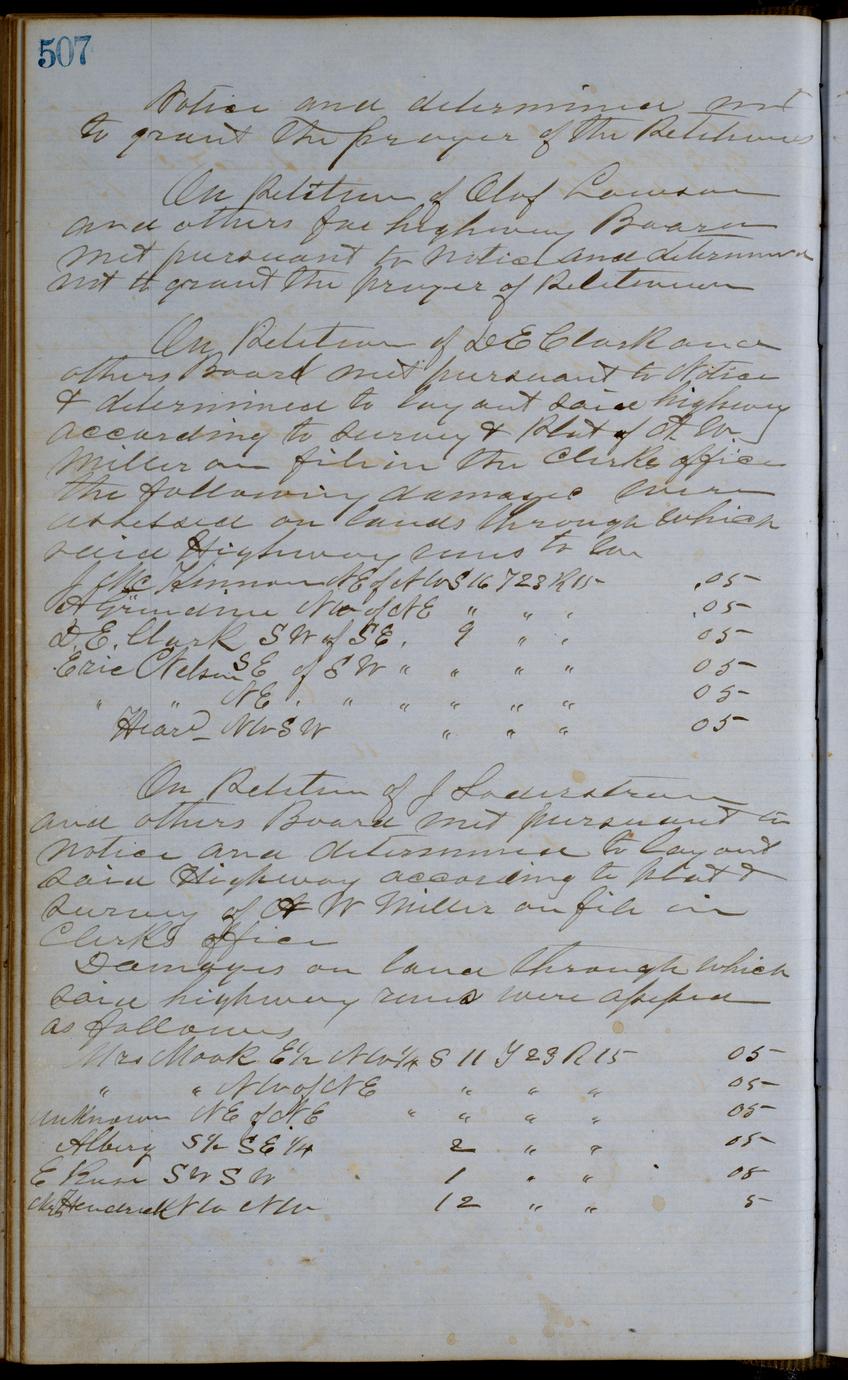 507
Notice and determined not
to grant the prayer of the Petitioners
On Petition of Olof Lawson
and others for highway Board
met pursuant to notice and determined
not to grant the prayer of Petitioners
On Petition of D E Clark and
others Board met pursuant to Notice
& determined to lay out said highway
according to survey & Plat of A. W.
Miller on file in the Clerks office
the following damages were
assessed on lands through which
said Highway runs to
J Mc Kinnon NE of NW S 16 T 23 R 15 .05
A NW of NE " " " .05
D. E. Clark SW of SE. 9 " " 05
Eric C Nelson SE of SW " " " " 05
" " NE. " " " " " 05
Heard NW SW " " " 05
On Petition of J Soderstrum
and others Board met pursuant to
notice and determined to lay out
said Highway according to plat &
survey of A W Miller on file in
Clerks office
Damages on land through which
said highway runs were assessed
as follows
Mrs Mook E½ NW¼ S 11 T 23 R 15 05
" " NW of NE " " " 05
unknown NE of NE " " " " 05
Alberg S½ SE ¼ 2 " " 05
E Ruse SW SW 1 " " 05
Hendrick NW NW 12 " " 5